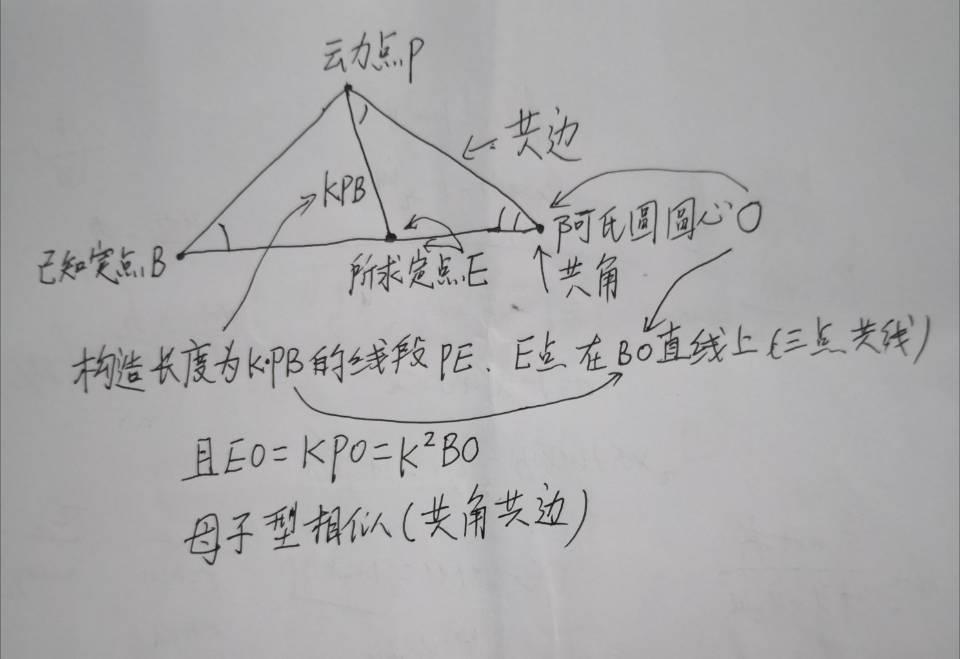 动点P
共边
KPB
阿氏圆圆心O
已知定点B
所求定点E
共角
构造长度为K·PB的线段PE、E点在BO直线上(三点共线)
且EO=KPO=K²BO
母子型相似(共角共边)